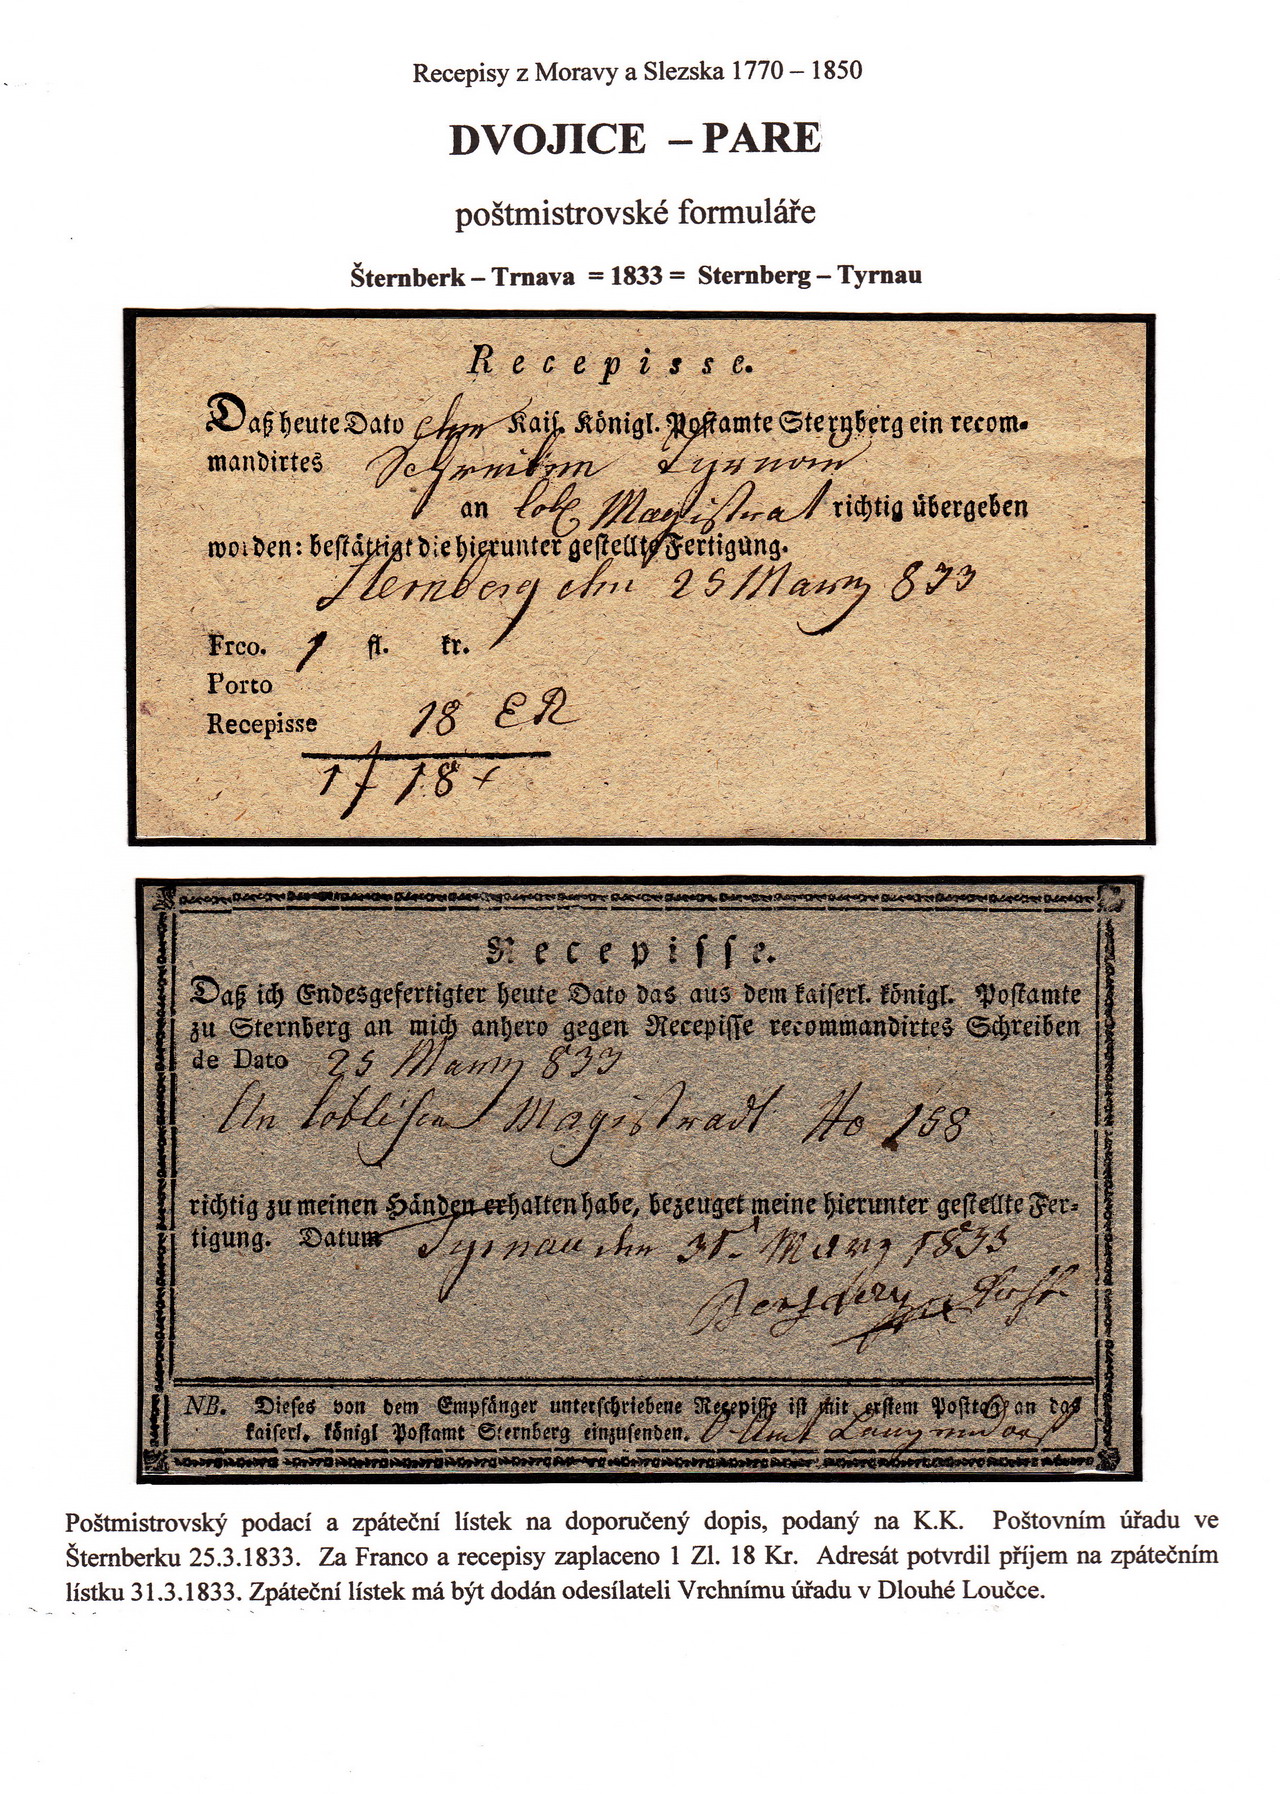 Recepisy z Moravy a Slezska 1770 – 1850
DVOJICE – PARE
poštmistrovské formuláře
Šternberk – Trnava = 1833 = Sternberg – Tyrnau
Recepisse.
Daß heute Dato dem Kais. Königl. Postamte Sternberg ein recom-
mandirtes Schreiben Tyrnau
an löb Magistrat richtig übergeben
worden: bestättigt die hierunter gestellte Fertigung.
Sternberg den 25 März 833
Frco. 1 fl. kr.
Porto
Recepisse 18 ER
1 f 18 x
Recepisse.
Daß ich Endesgefertigter heute Dato das aus dem kaiserl. königl. Postamte
zu Sternberg an mich anhero gegen Recepisse recommandirtes Schreiben
de Dato 25 März 833
An löblichen Magistradt No 158
richtig zu meinen Händen erhalten habe, bezeuget meine hierunter gestellte Fer-
tigung. Datum Tyrnau den 31. März 1833
NB. Dieses von dem Empfänger unterschriebene Recepisse ist mit erstem Posttag an das
kaiserl. königl Postamt Sternberg einzusenden. O Amt Langendorf
Poštmistrovský podací a zpáteční lístek na doporučený dopis, podaný na K.K. Poštovním úřadu ve
Šternberku 25.3.1833. Za Franco a recepisy zaplaceno 1 Zl. 18 Kr. Adresát potvrdil příjem na zpátečním
lístku 31.3.1833. Zpáteční lístek má být dodán odesílateli Vrchnímu úřadu v Dlouhé Loučce.